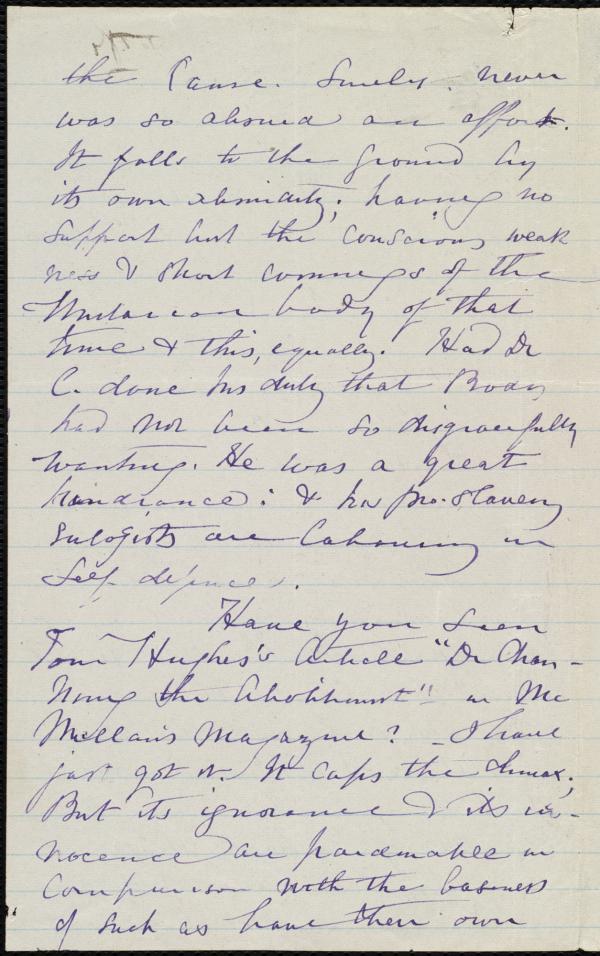 the Cause. Surely, never
was so absurd an effort.
It falls to the ground by
its own absurdity; having no
support but the conscious weak
ness & short comings of the
Unitarian body of that
time & this, equally. Had Dr
C. done his duty that Body
had not been so disgracefully
wanting. He was a great
hindrance: & his pro-slavery
Eulogists are labouring in
Self defence.
Have you seen
Tom Hughes's Article "Dr Chan-
ning the Abolitionist" in Mc
Millan's Magazine? I have
just got it. It caps the climax;
But its ignorance & its in-
nocence are pardonable in
Comparison with the baseness
of such as have their own